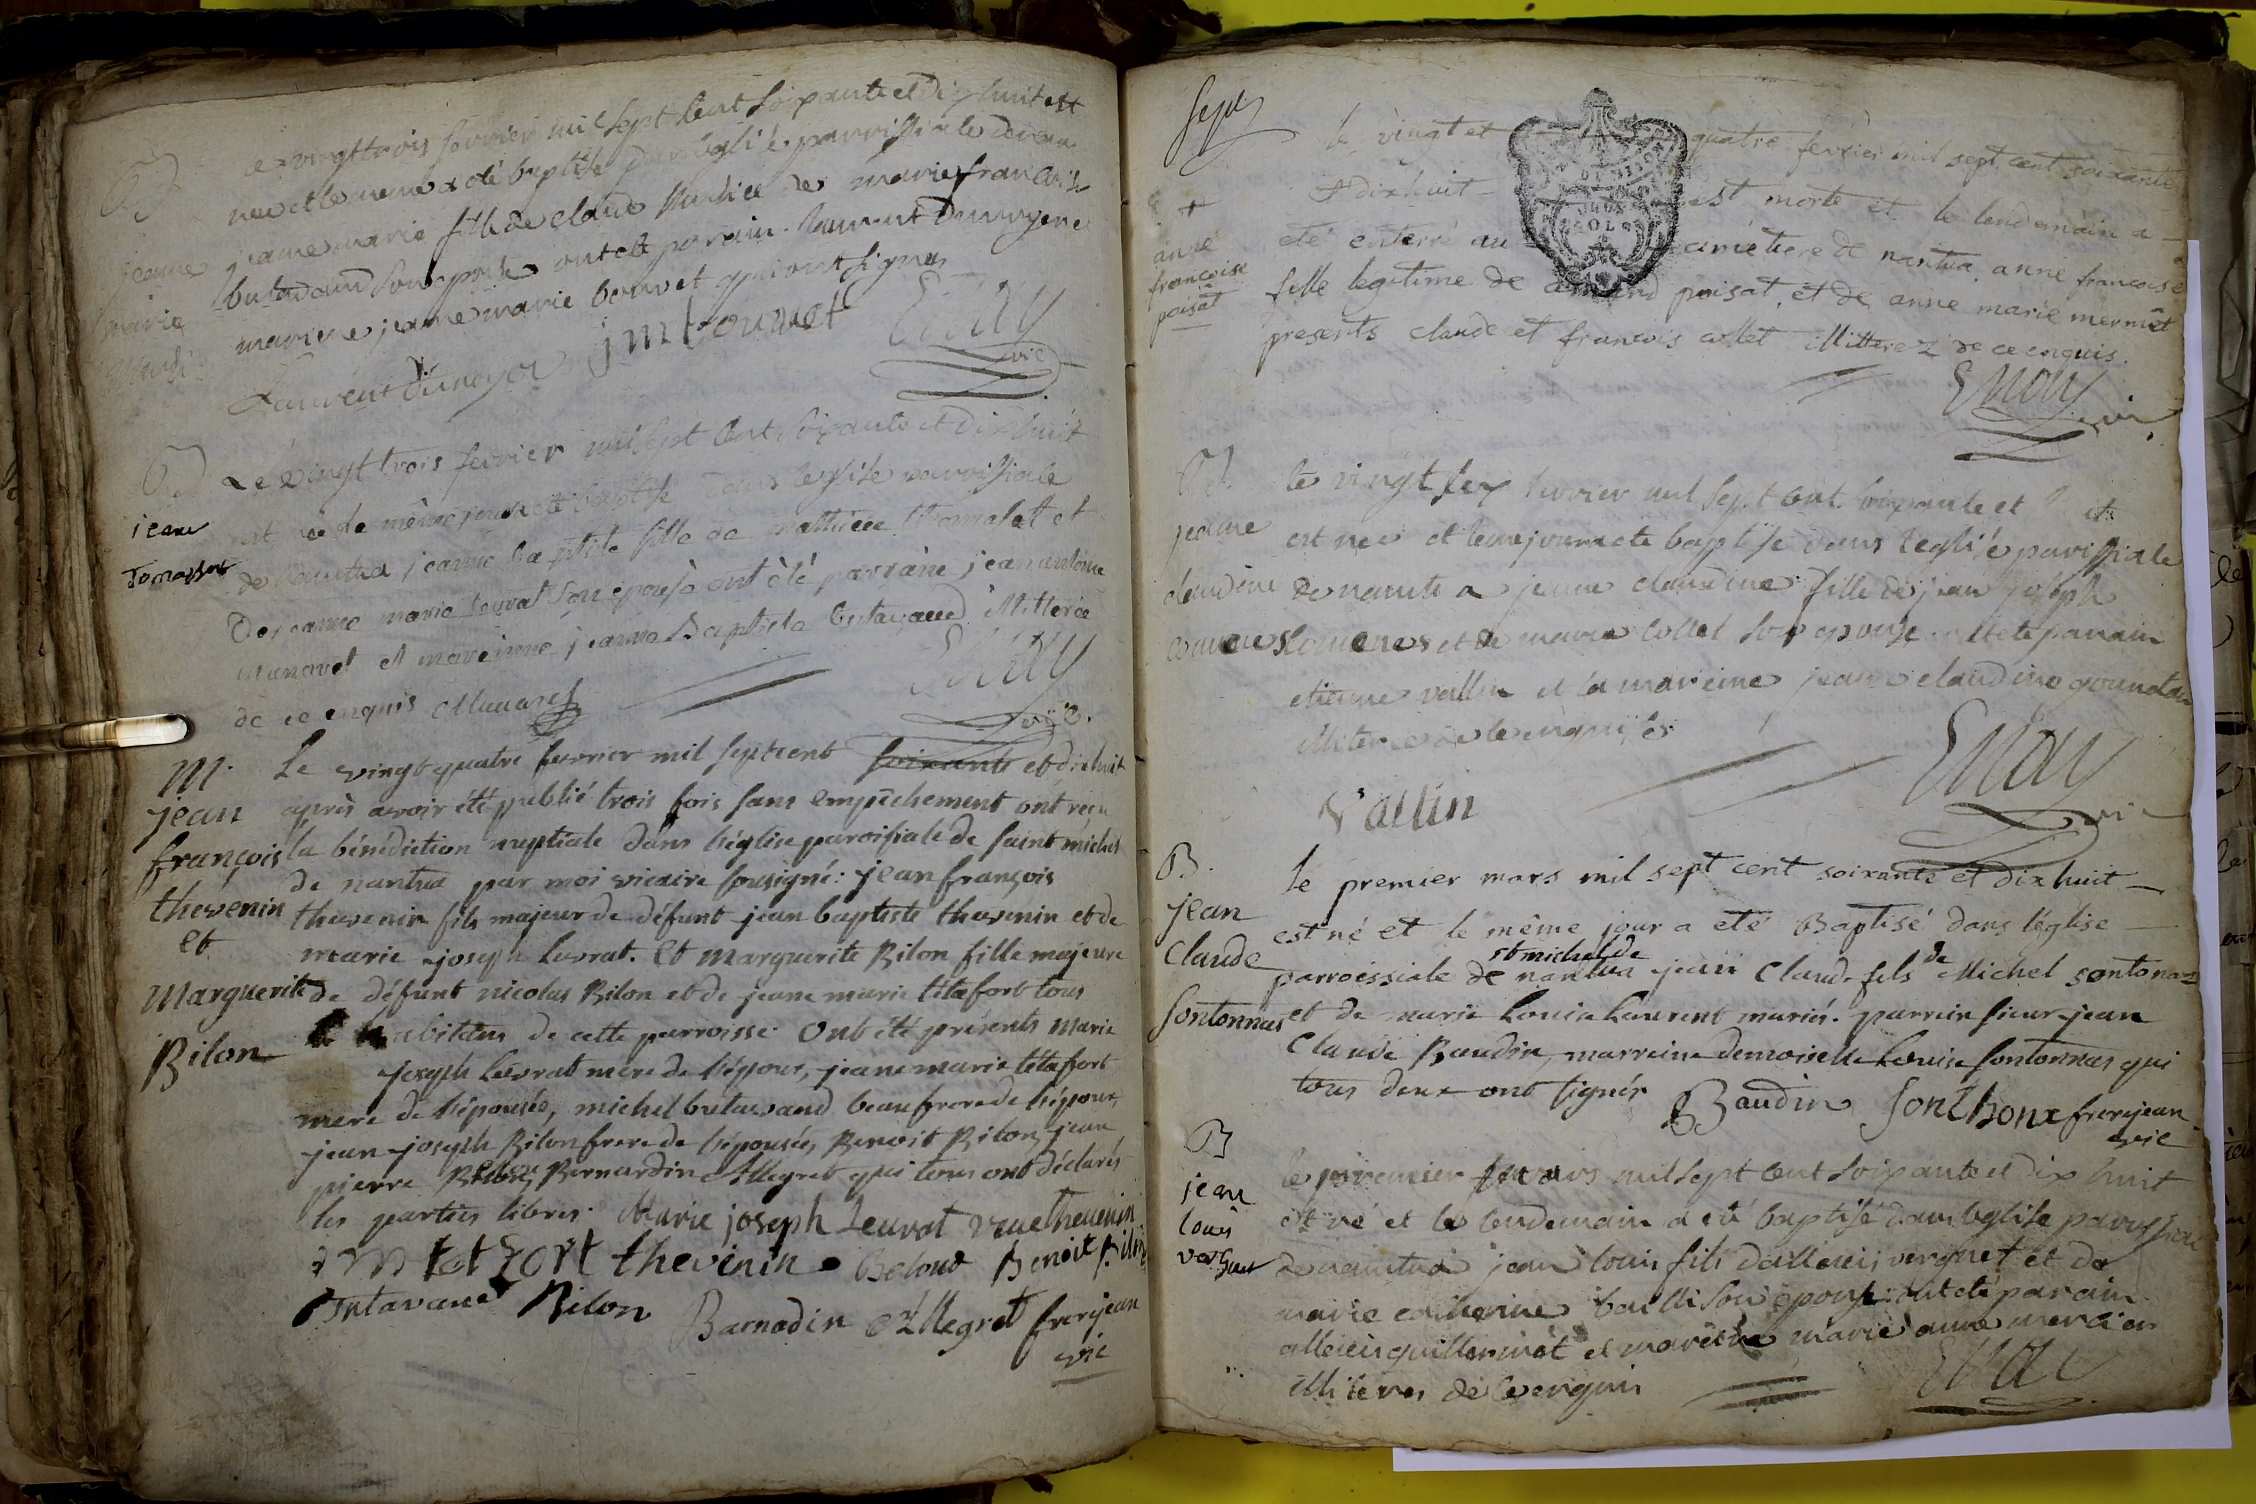 B
jeanne
marie
vingt trois fevrier mil sept cent soixante et dix huit est
née et le meme a été baptisée dans l'eglise parroissiale de nantua
jeanne marie fille de claude de marie francoise
butavand son epouse ont été parrain laurent Dunoyer
mareine jeanne marie bouvet qui ont signés
Laurent dunoyer jm bouvet
vic
B
jean
Tomasset
Le vingt trois fevrier mil sept cent soixante et dix huit
est née le même jour a été baptisé dans l'eglise parroissiale
de nantua jeanne baptiste fille de mathieu thomaset et
de jeanne marie levrat son epouse ont été parrain jean antoine
manavel et mareinne jeanne Baptiste butavand illiterée
de ce enquis Manavel
vic.
M.
jean
françois
thevenin
et
Marguerite
Bilon
Le vingt quatre fevrier mil sept cent soixante et dix huit
après avoir été publié trois fois sans empêchement ont reçu
la bénédiction nuptiale dans l'église paroissiale de saint michel
de nantua par moi vicaire sousigné: jean françois
thevenin fils majeur de défunt jean baptiste thevenin et de
marie joseph levrat. Et marguerite Bilon fille majeure
de défunt nicolas Bilon et de jeane marie tétafort tous
habitans de cette parroisse. Ont été présents marie
joseph levrat mere de l'époux, jeane marie tétafort
mere de l'épousée, michel butavand beaufrere de l'époux,
jean joseph Bilon frere de l'épousée, Benoit Bilon, jean
pierre Bilon, Bernardin Allegret qui tous ont déclarés
les parties libres. Marie joseph Leuvrat veuve thevenin
j M tetafort thevenin Benoit Bilon
Butavand Bilon Barnadin Allegret frerejean
vic
Sepre
+
anne
françoise
poisat
le vingt et quatre fevrier mil sept cent soixante
et dix huit est morte et le lendemain a
eté enterré au cimétiere de nantua anne francoise
fille legitime de poisat et de anne marie mermet
presents claude et francois collet illitterez de ce enquis.
vic
B
jeanne
claudine
le vingt six fevrier mil sept cent soixante et
est née et le meme jour a ete baptisé dans l'eglise parissiale
de nantua jeanne claudine fille de jean joseph
et de marie collet son epouse ont ete parrain
etienne vallin et la mareine jeane claudine
illiterée de ce enquises
Vallin
vic
B.
jean
Claude
sontonnas
le premier mars mil sept cent soixante et dix huit
est né et le même jour a eté Baptisé dans l'église
st michel de
parroissiale de nantua jean Claude fils de Michel sontonaz
et de marie Louise Laurent mariés. parrein sieur jean
Claude Baudin, marreine demoiselle Louise sontonnas qui
tous deux ont signés Baudin Sonthonax frerejean
vic
B
jean
louis
verguet
le premier mars mil sept cent soixante et dix huit
est né et le lendemain a eté baptisé dans leglise parrissiale
de nantua jean louis fils dallexis verguet et de
marie catherine bailli son epouse: ont eté parain
allexis guillermet et mareine marie anne mercier
illiteres de ce enquis